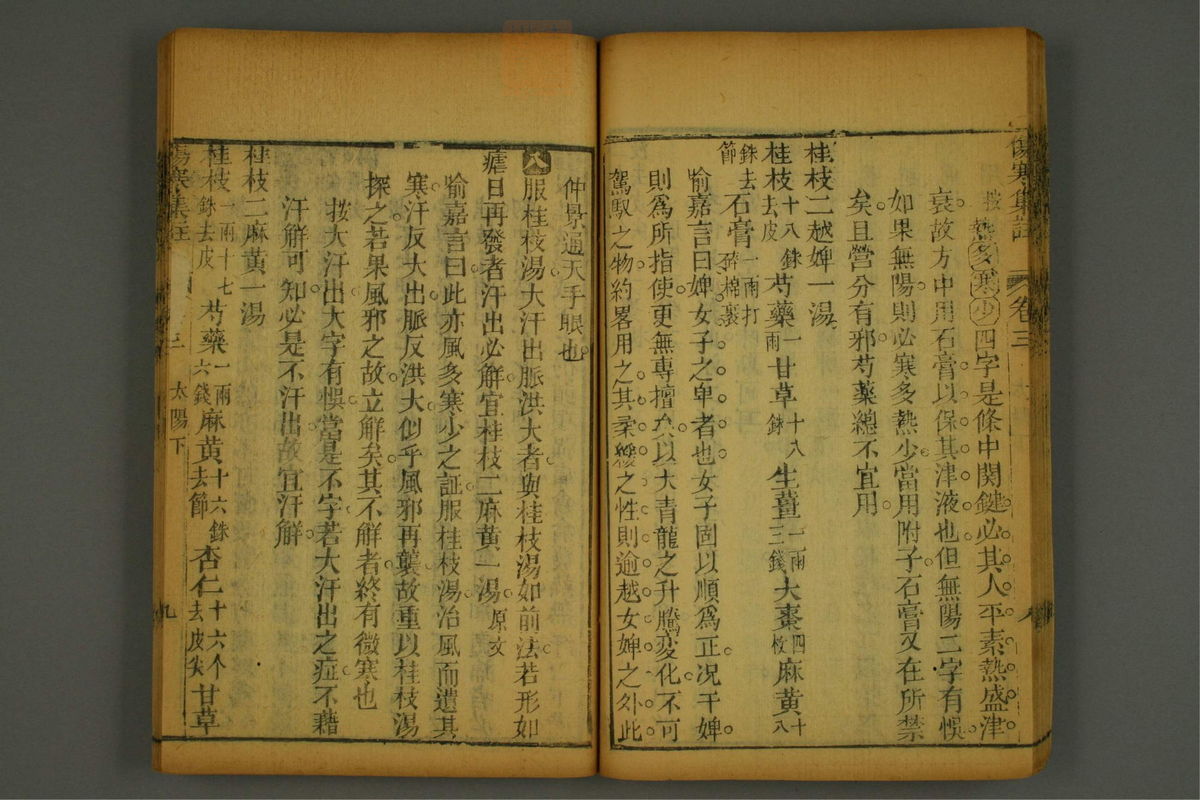 傷寒集註 卷三
按熱多寒少四字是條中関鍵必其人平素熱盛津
衰故方中用石膏以保其津液也但無陽二字有悞
如果無陽則必寒多熱少當用附子石膏又在所禁
矣且營分有邪芍藥總不宜用
桂枝二越婢一湯
桂枝十八銖去皮 芍藥一兩 甘草十八銖 生薑一兩三錢 大棗四枚 麻黃十八
銖去節 石膏一兩打碎棉裹
喻嘉言曰婢女子之卑者也女子固以順爲正况于婢
則爲所指使更無專擅矣以大青龍之升騰变化不可
駕馭之物約畧用之其柔緩之性則逾越女婢之外此
仲景通天手眼也
八 服桂枝湯大汗出脈洪大者與桂枝湯如前法若形如
瘧日再發者汗出必解宜桂枝二麻黃一湯 原文
喻嘉言曰此亦風多寒少之証服桂枝湯治風而遺其
寒汗反大出脈反洪大似乎風邪再襲故重以桂枝湯
探之若果風邪之故立解矣其不解者終有微寒也
按大汗出大字有悞當是不字若大汗出之症不藉
汗解可知必是不汗出故宜汗解
桂枝二麻黃一湯
桂枝一兩十七銖去皮 芍藥一兩六錢 麻黃十六銖去節 杏仁十六个去皮尖 甘草
傷寒集註 卷三 太陽下 九